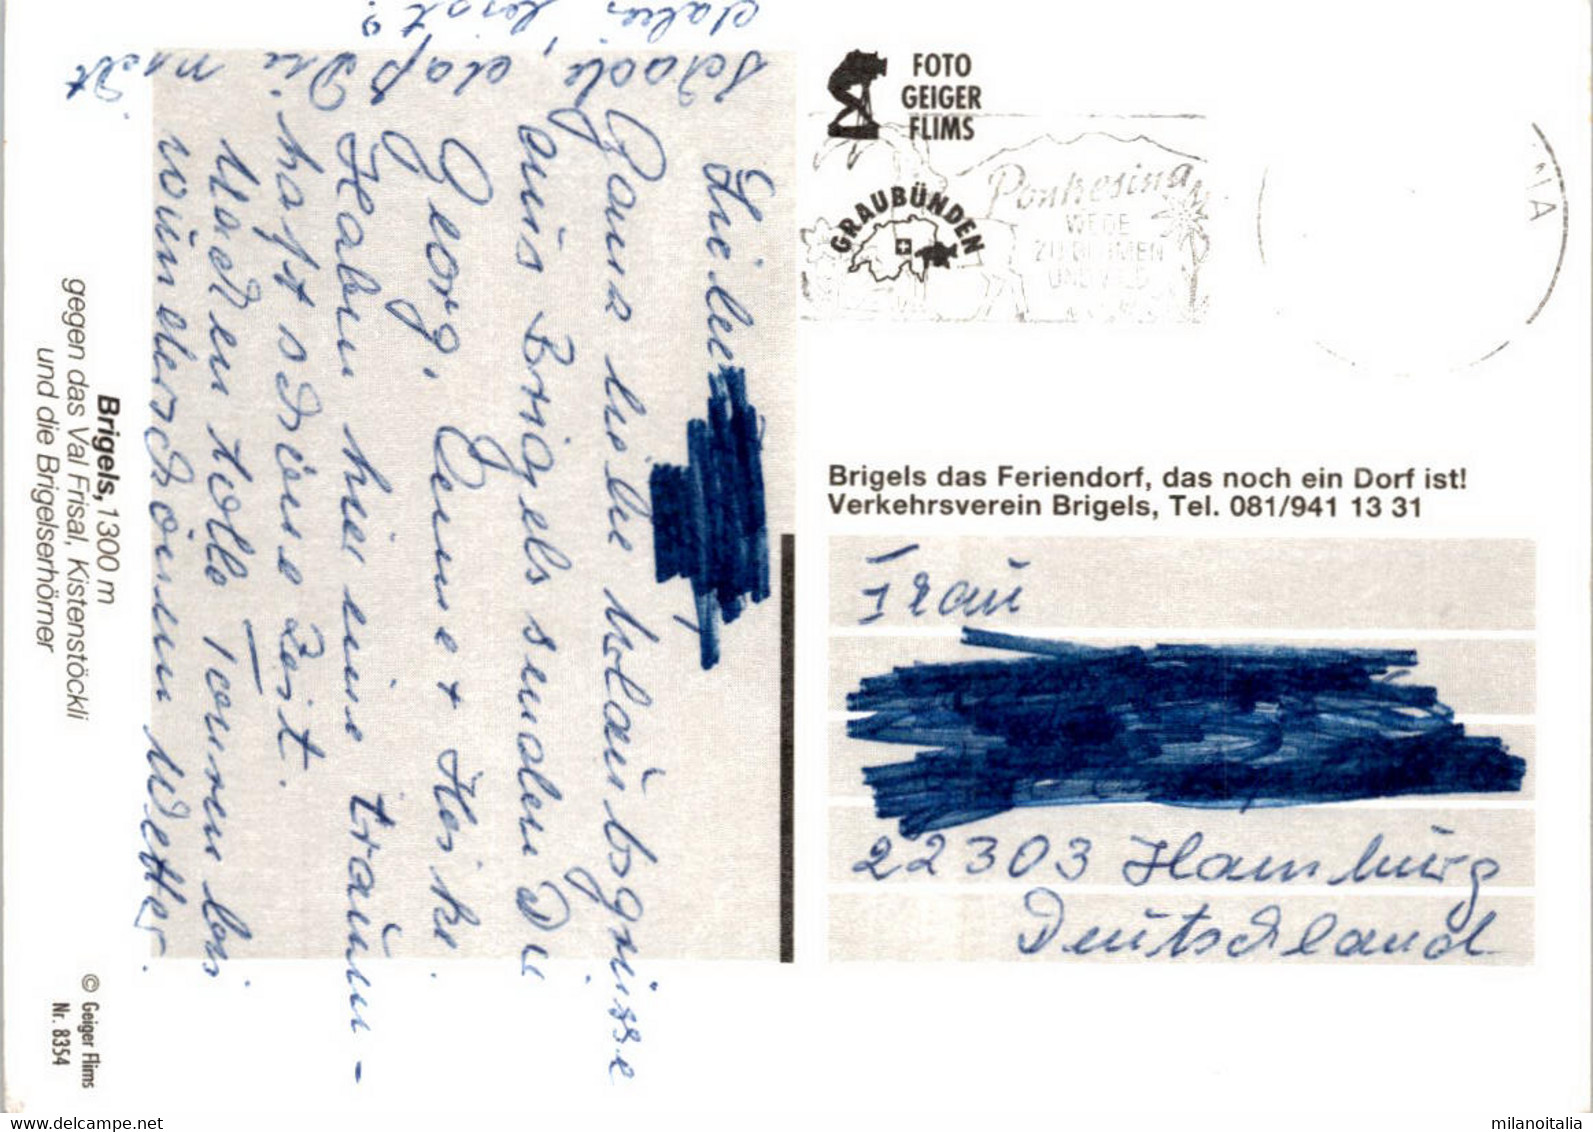 Liebe
Ganz liebe Urlaubsgrüsse
aus Brigels senden Dir
Georg, Anne + Heike.
Haben hier eine traum-
haft schöne Zeit.
Machen tolle Touren bei
wunderschönem Wetter.
Schade, daß Du nicht
dabei bist!
Brigels, 1300 m
gegen das Val Frisal, Kistenstöckli
und die Brigelserhörner
© Geiger Flims
Nr. 8354
FOTO
GEIGER
FLIMS
GRAUBÜNDEN
Pontresina
WEGE
ZU BLUMEN
UND WILD
Brigels das Feriendorf, das noch ein Dorf ist!
Verkehrsverein Brigels, Tel. 081/941 13 31
Frau
22303 Hamburg
Deutschland
www.delcampe.net
milanoitalia